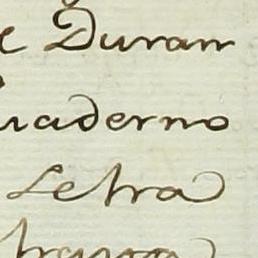 e Duran
uaderno
Letra